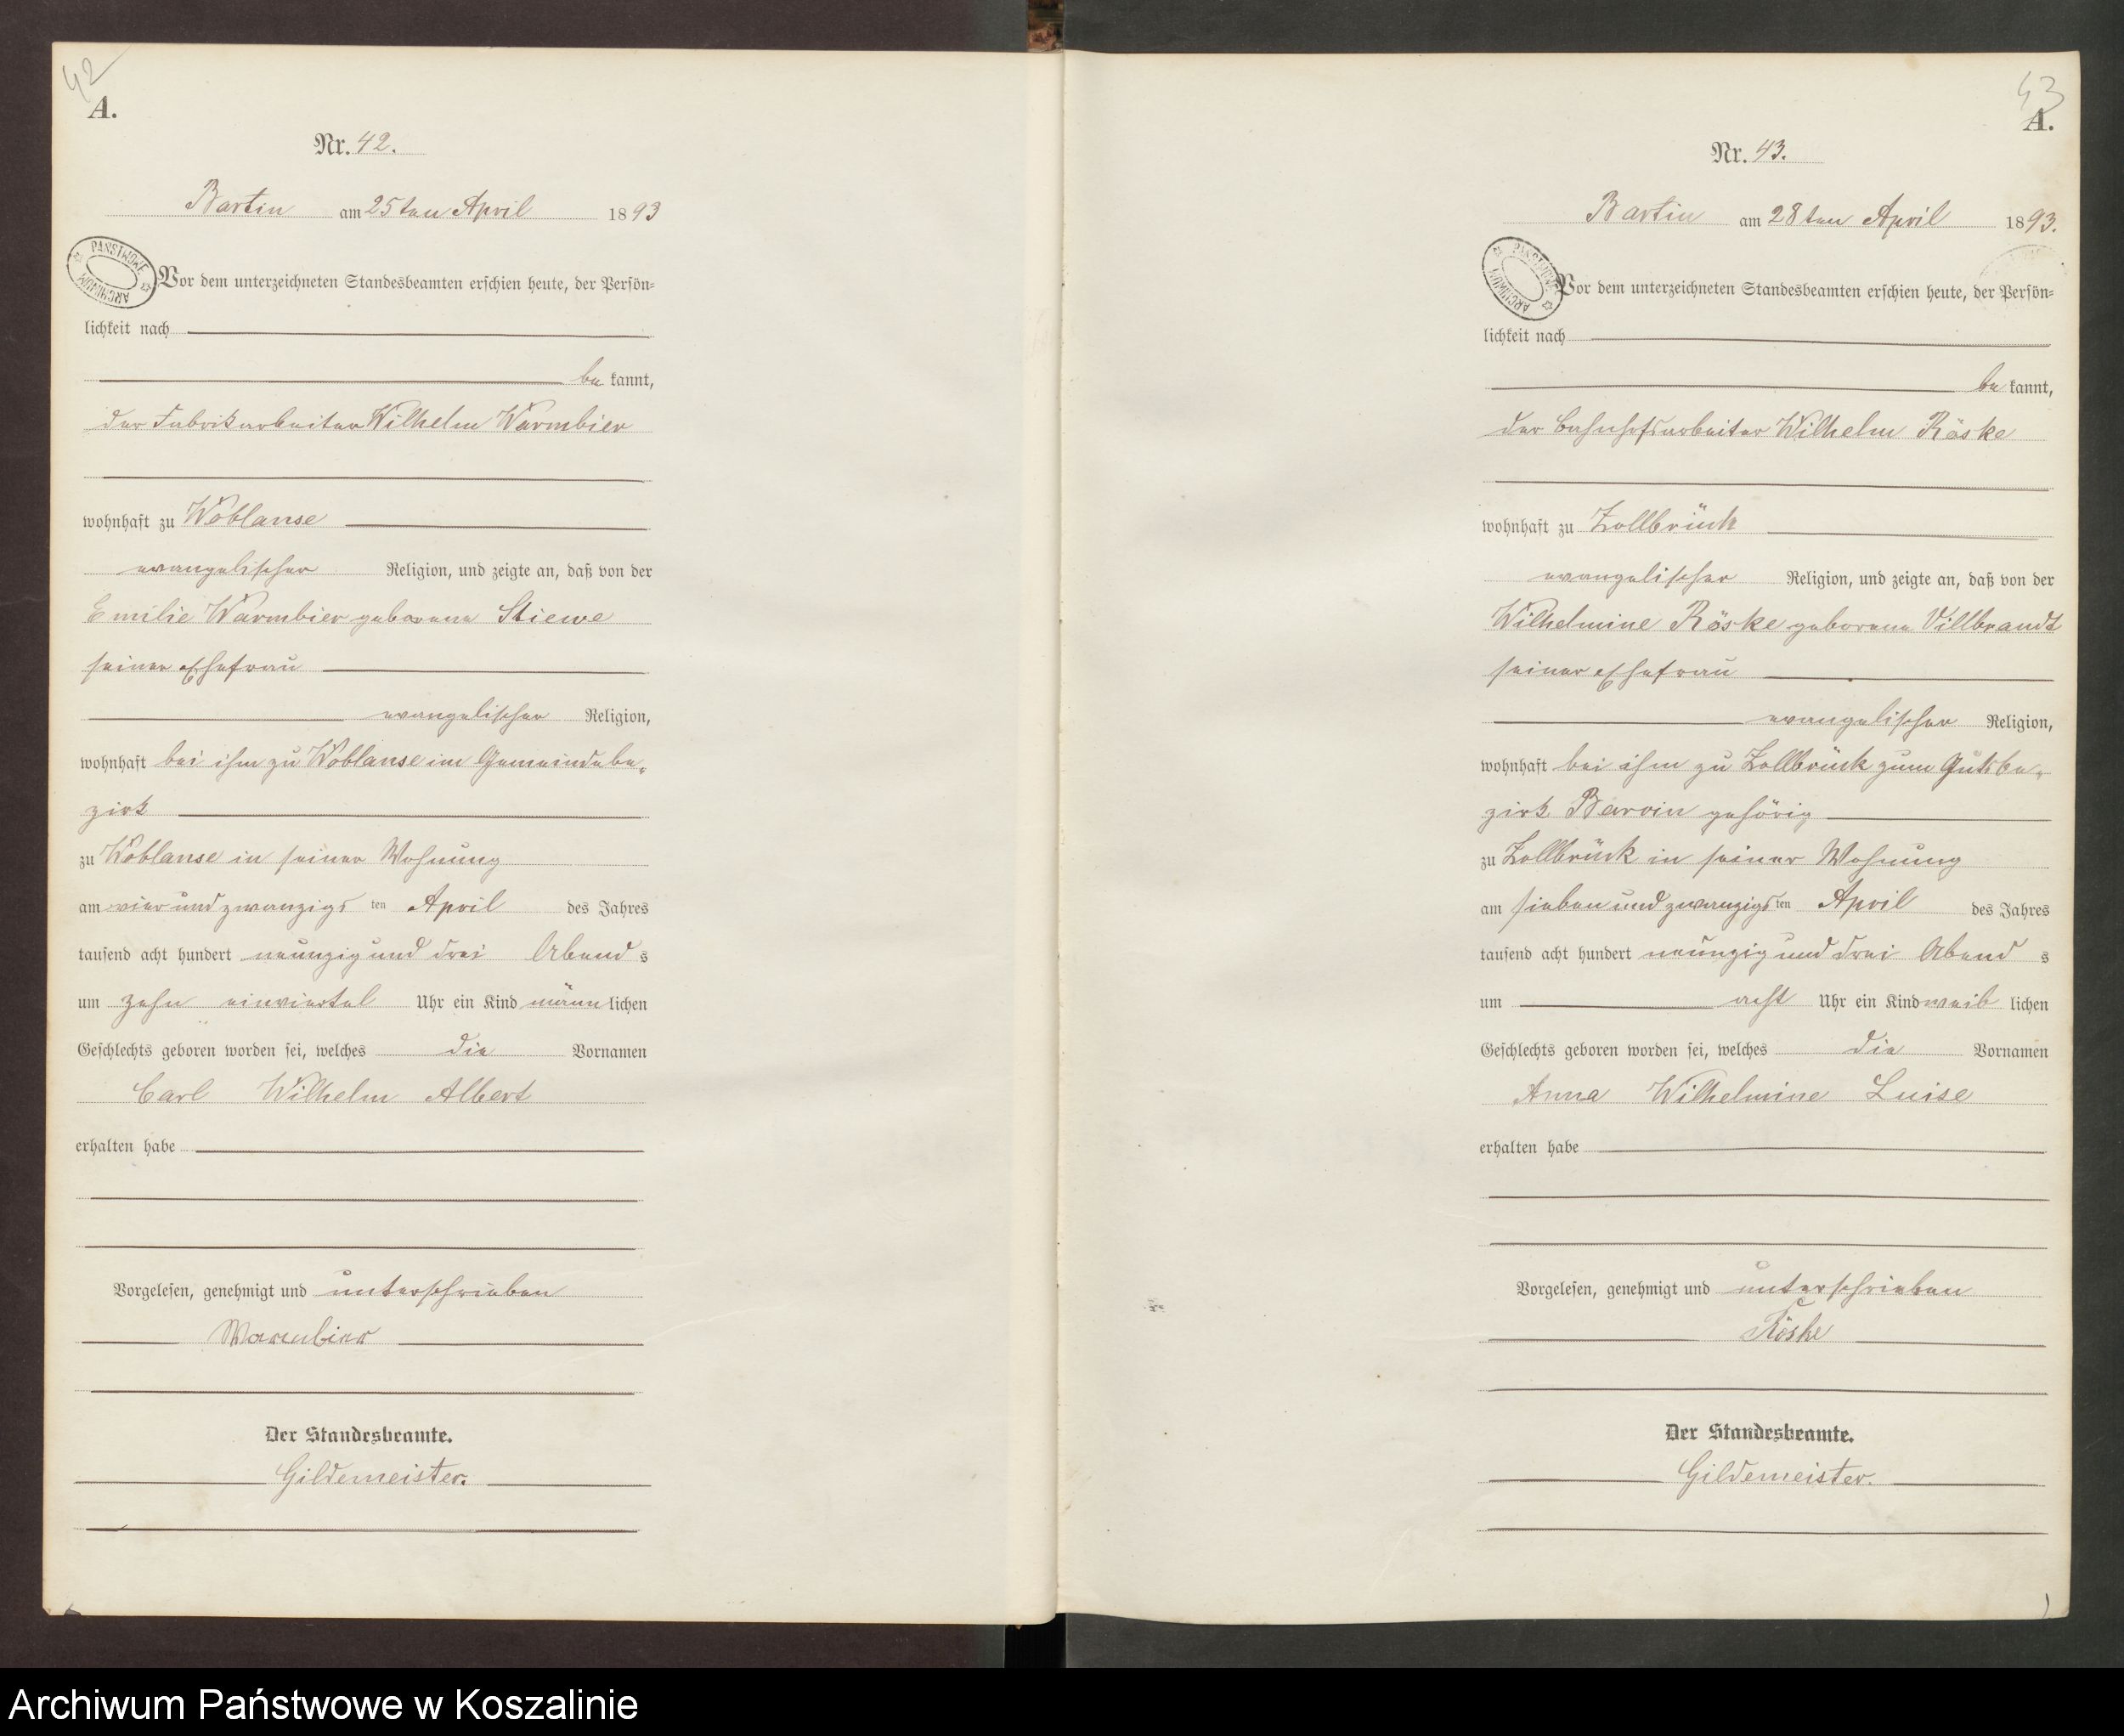 42
A.
Nr. 42.
Bartin am 25ten April 1893
PAŃSTWOWE ARCHIWUM
Vor dem unterzeichneten Standesbeamten erschien heute, der Persön=
lichkeit nach
be kannt,
der Fabrikarbeiter Wilhelm Warmbier
wohnhaft zu Woblanse
evangelischer Religion, und zeigte an, daß von der
Emilie Warmbier geborene Stiewe
seiner Ehefrau
evangelischer Religion,
wohnhaft bei ihm zu Woblanse im Gemeindebe„
zirk
zu Woblanse in seiner Wohnung
am vierundzwanzigs ten April des Jahres
tausend acht hundert neunzig und drei Abend s
um zehn einviertel Uhr ein Kind männ lichen
Geschlechts geboren worden sei, welches die Vornamen
Carl Wilhelm Albert
erhalten habe
Vorgelesen, genehmigt und unterschrieben
Warmbier
Der Standesbeamte.
Gildemeister.
43
A.
Nr. 43.
Bartin am 28ten April 1893.
PAŃSTWOWE ARCHIWUM
Vor dem unterzeichneten Standesbeamten erschien heute, der Persön=
lichkeit nach
be kannt,
der Bahnhofsarbeiter Wilhelm Röske
wohnhaft zu Zollbrück
evangelischer Religion, und zeigte an, daß von der
Wilhelmine Röske geborene Villbrandt
seiner Ehefrau
evangelischer Religion,
wohnhaft bei ihm zu Zollbrück zum Gutsbe„
zirk Barvin gehörig
zu Zollbrück in seiner Wohnung
am siebenundzwanzigs ten April des Jahres
tausend acht hundert neunzig und drei Abend s
um acht Uhr ein Kind weib lichen
Geschlechts geboren worden sei, welches die Vornamen
Anna Wilhelmine Luise
erhalten habe
Vorgelesen, genehmigt und unterschrieben
Röske
Der Standesbeamte.
Gildemeister.
Archiwum Państwowe w Koszalinie